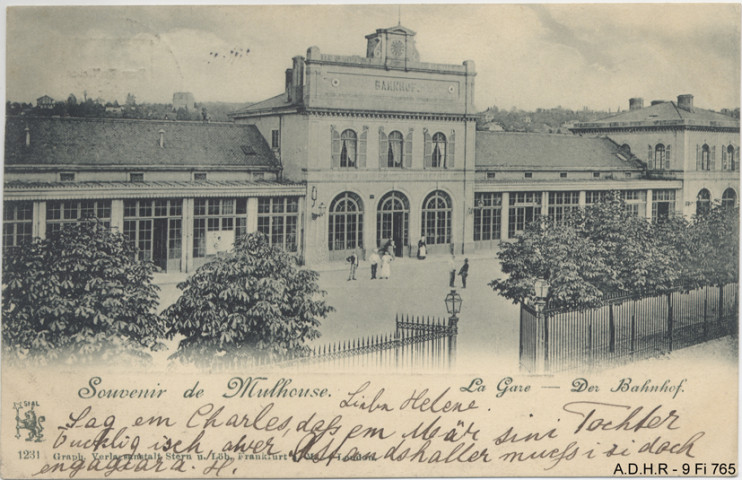 BAHNHOF.
Souvenir de Mulhouse.
La Gare — Der Bahnhof.
Liebn Helene.
Sag em Charles, daß em Mär sini Tochter
isch, awer muess i si doch
engagiara. H.
SIAL
1231 Graph. Verlagsanstalt Stern u. Löb, Frankfurt London.
A.D.H.R - 9 Fi 765